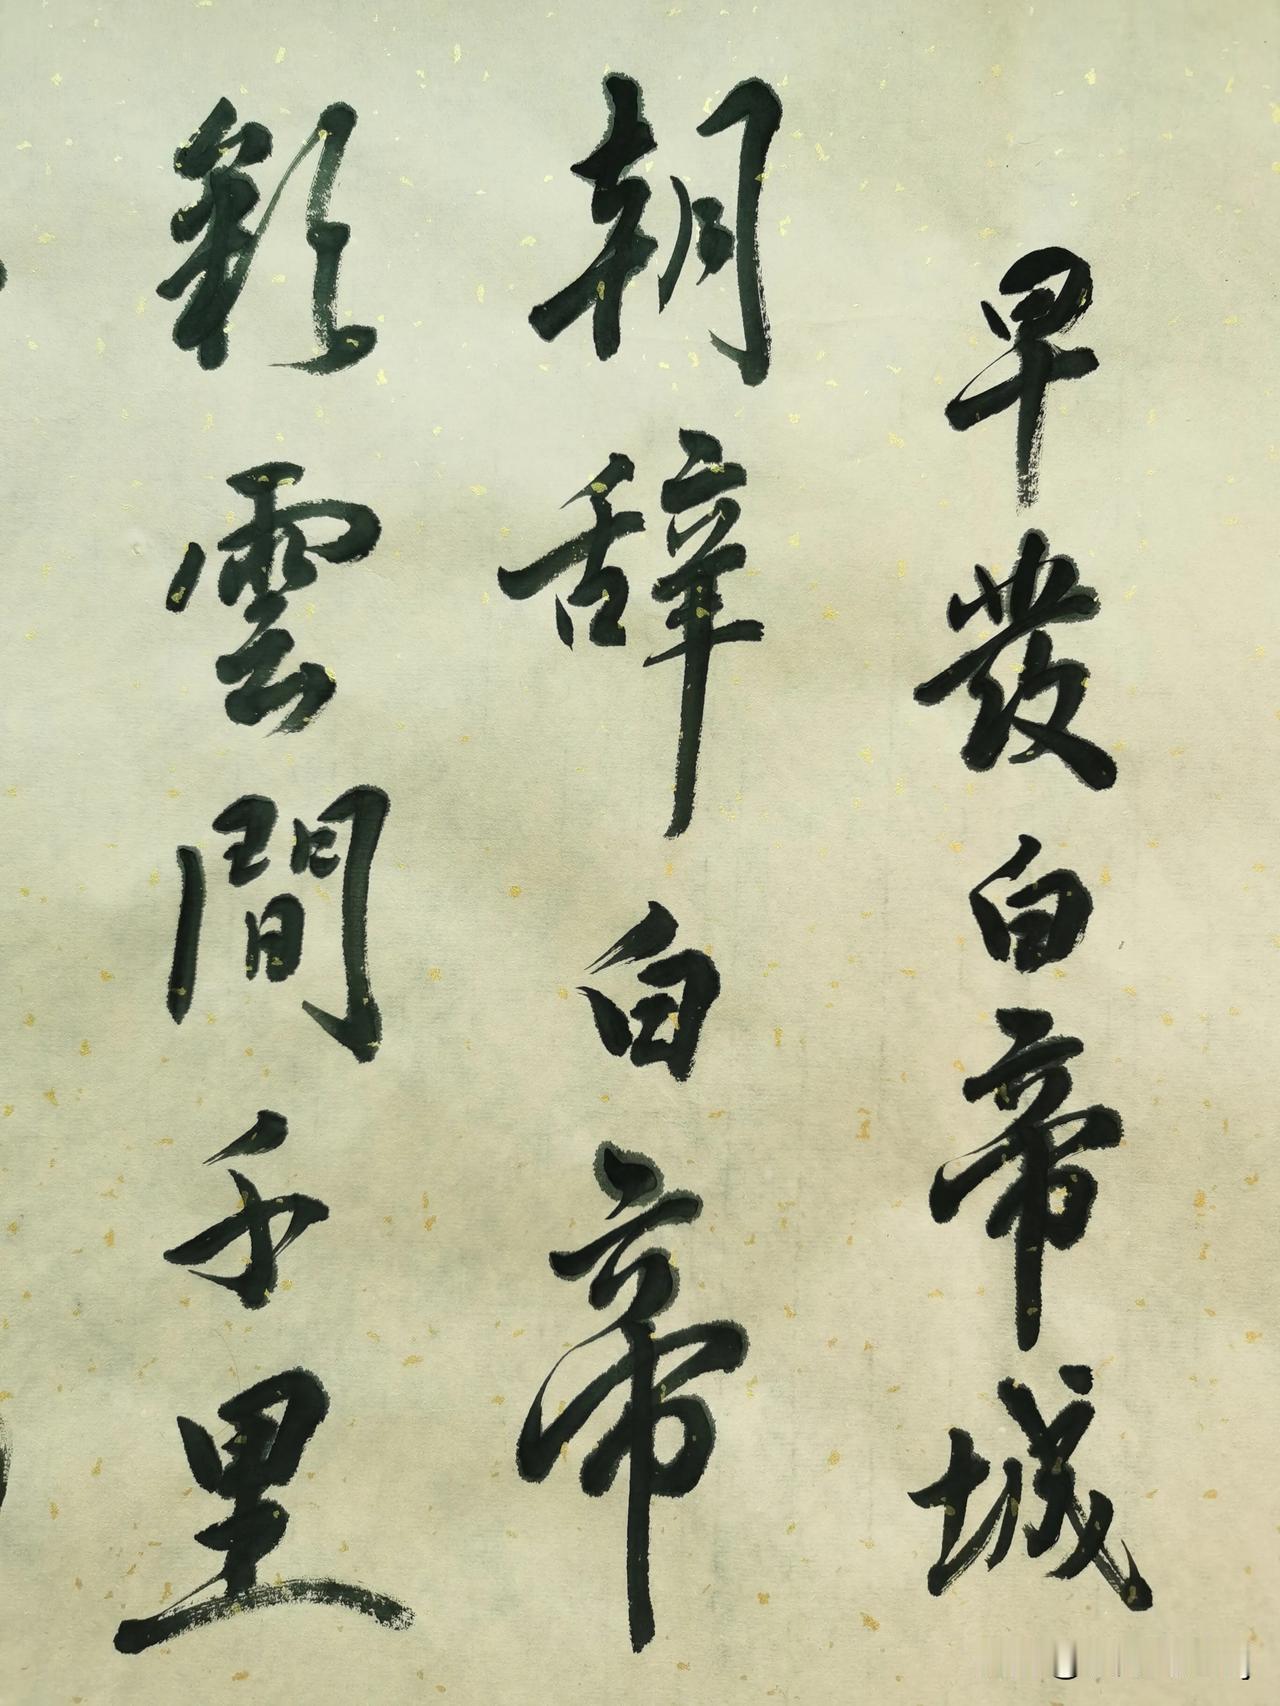 早發白帝城
朝辞白帝
彩雲間千里